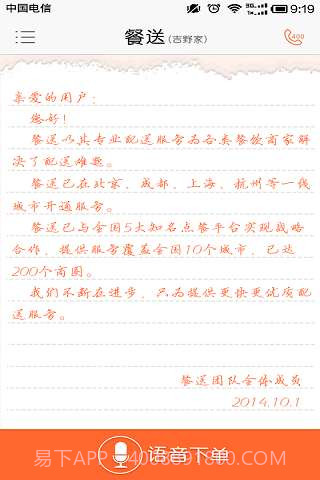 中国电信 9:19
餐送(吉野家) 400
亲爱的用户：
您好！
餐送以其专业配送服务为各类餐饮商家解
决了配送难题。
餐送已在北京、成都、上海、杭州等一线
城市开通服务。
餐送已与全国5大知名点餐平台实现战略
合作，提供服务覆盖全国10个城市，已达
200个商圈。
我们不断在进步，只为提供更快更优质配
送服务。
餐送团队全体成员
2014.10.1
语音下单